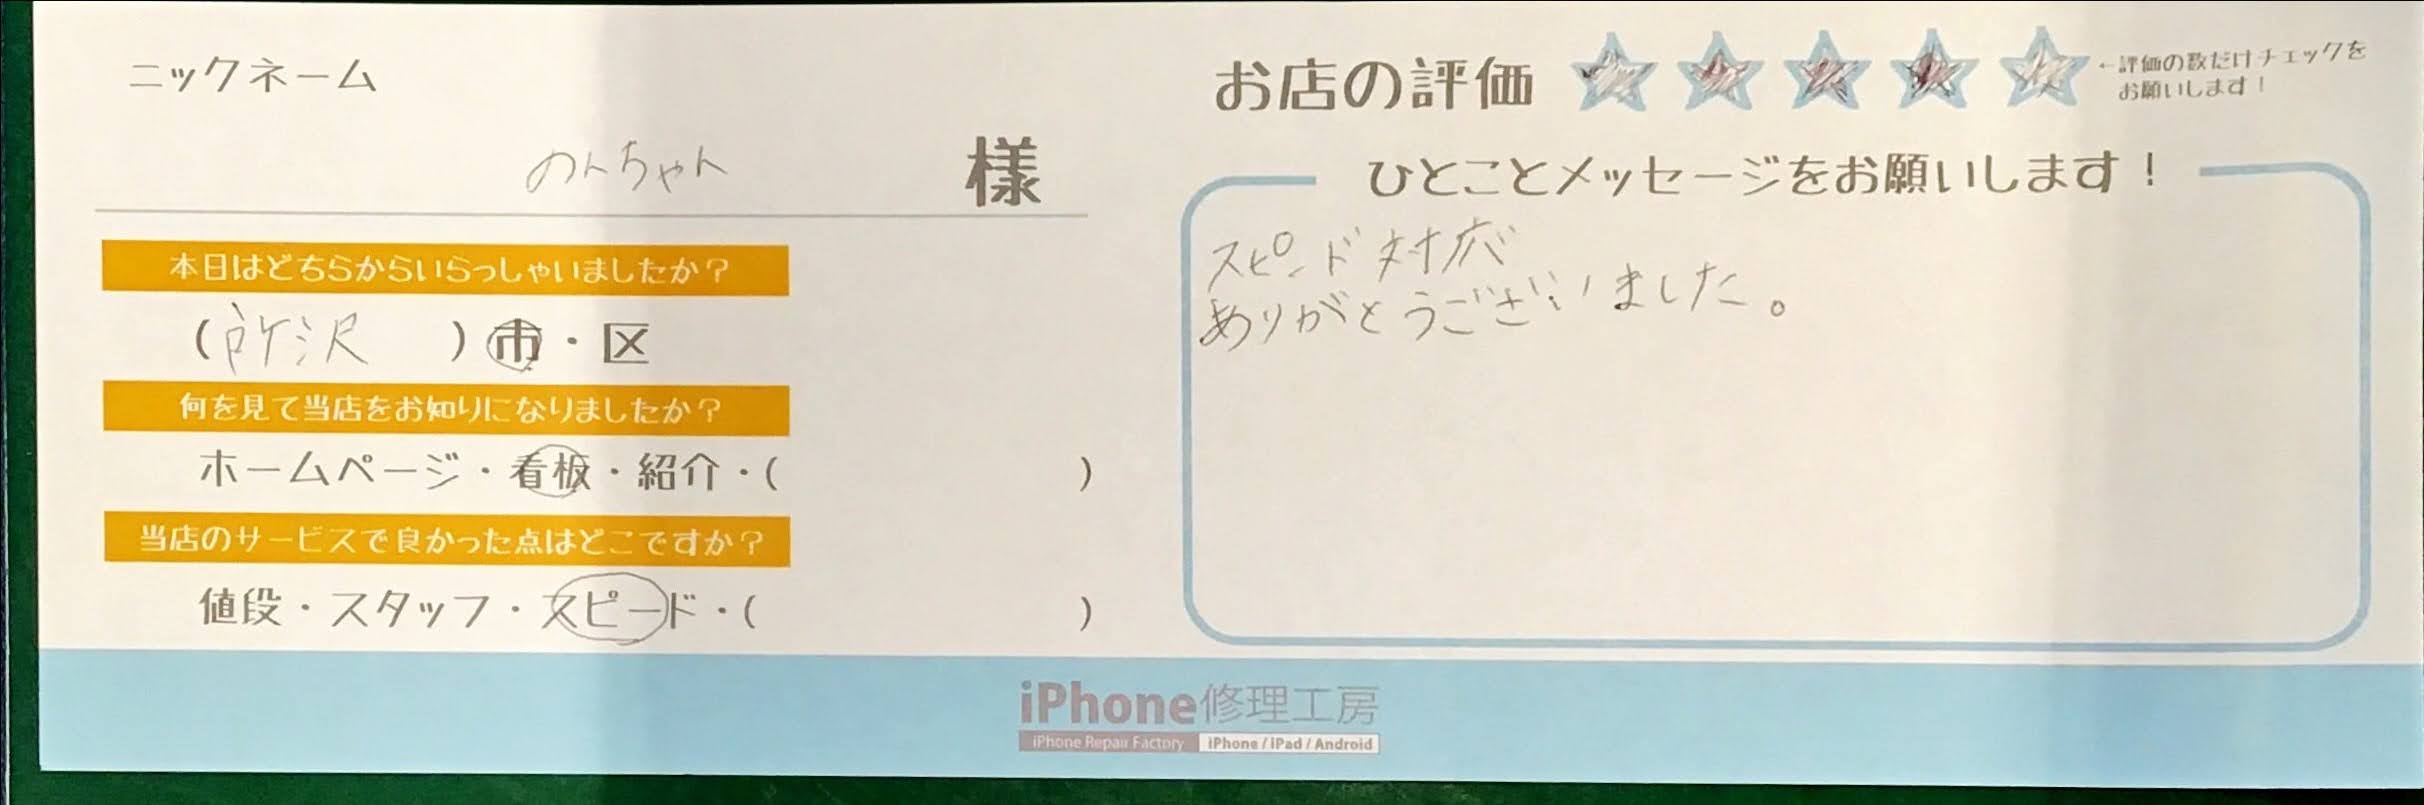 ニックネーム
のんちゃん 様
本日はどちらからいらっしゃいましたか？
(所沢 ) 市・区
何を見て当店をお知りになりましたか？
ホームページ・看板・紹介・( )
当店のサービスで良かった点はどこですか？
値段・スタッフ・スピード・( )
お店の評価
←評価の数だけチェックを
お願いします！
ひとことメッセージをお願いします！
スピード対応
ありがとうございました。
iPhone修理工房
iPhone Repair Factory iPhone / iPad / Android